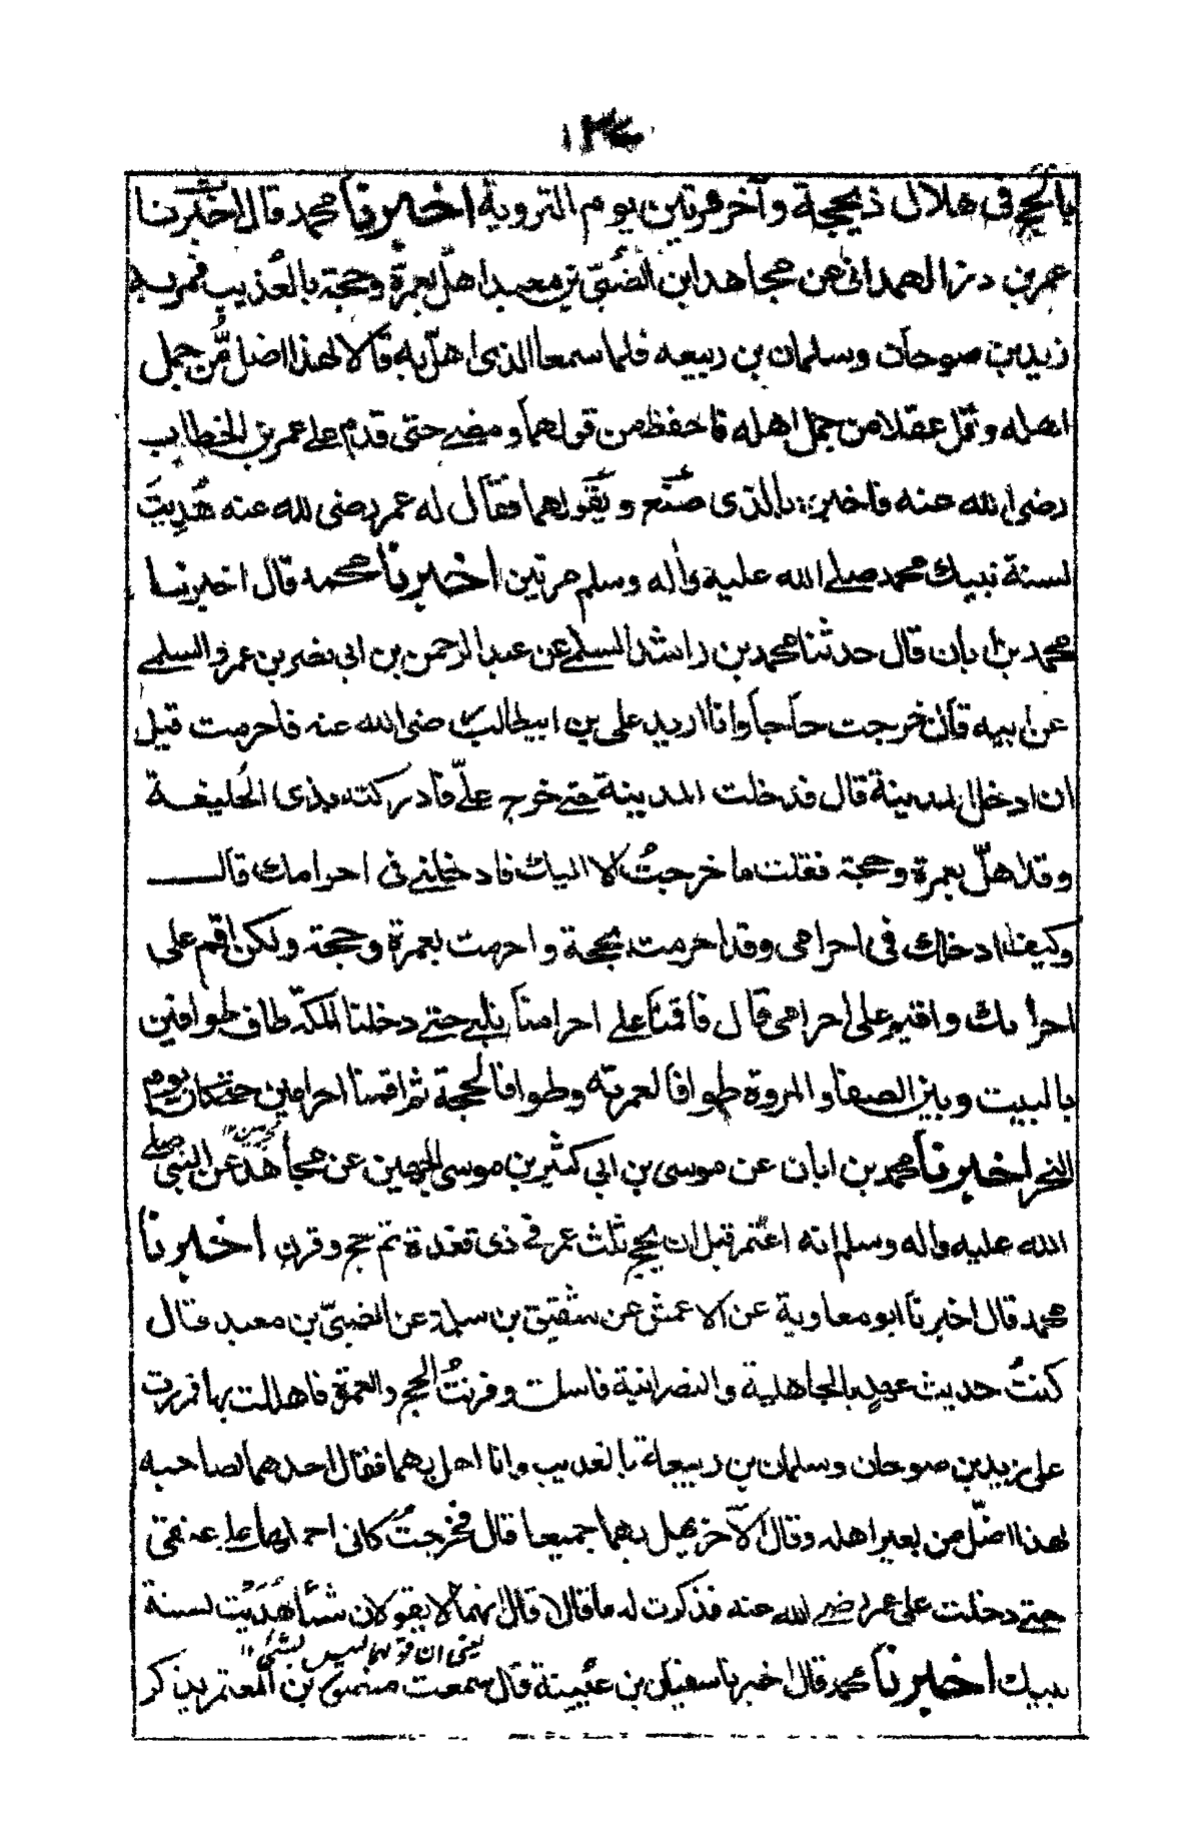 ١٣٤
بالحج فى هلال ذيحجة وآخر مرتين يوم التروية اخبرنا محمد قال اخبرنا
عمر بن ذر الهمدانى عن مجاهد ابن الضُبَىّ بن معبد اهلّ بعمرةٍ وحجة بالعُذيب فمر به
زيد بن صوحان وسلمان بن ربيعه فلما سمعا الذى اهلّ به قالا لهذا اضل مّن جمل
اهله و عقلا من جمل اهله فاحفظ من قولهما ومضے حتى قدم على عمر بن الخطاب
رضى الله عنه فاخبره بالذى صنع وبقولهما فقال له عمر رضى الله عنه هُدِيتَ
لسنة نبيك محمد صلے الله عليه واله وسلم مرتين اخبرنا محمد قال اخبرنا
محمد بن ابان قال حدثنا محمد بن راشد السلمے عن عبد الرحمن بن ابى نصر بن عمرو السلمے
عن ابيه قال خرجت حاجا وانا اريد على بن ابيطالب رضى الله عنه فاحرمت قبل
ان ادخل المدينة قال فدخلت المدينة حتے خرج علىّ فادركته بذى الحُليفة
وقد اهلّ بعمرة وحجة فقلت ما خرجتُ الا اليك فادخلنے فى احرامك قال
وكيف ادخلك فى احرامى وقد احرمت بحجة واحرمت بعمرة وحجة ولكن اقم على
احرامك واقيم على احرامى قال فاقمنا على احرامنا نلبے حتے دخلنا المكة طاف طوافين
بالبيت وبين الصفا والمروة طوافا لعمرته وطوافا لحجة ثم اقمنا احرامين حتے كان يوم
النحر اخبرنا محمد بن ابان عن موسى بن ابى كثير بن موسى الجهين عن مجاهد عن النبى صلے
الله عليه واله وسلم انه اعتمر قبل ان يحج ثلث عمر فى ذى قعدة ثم حج وقرن اخبرنا
محمد قال اخبرنا ابو معاوية عن الاعمش عن شقيق بن سلمة عن الضبىّ بن معبد قال
كنتُ حديث عهدٍ بالجاهلية والنصرانية فاسلمت وقرنتُ الحج والعمرة فاهللت بهما فمررت
على زيد بن صوحان وسلمان بن ربيعة بالعديب وانا اهل بهما فقال احدهما لصاحبه
لهذا اضلّ من بعير اهله وقال الآخر يهل بهما جميعا قال فخرجتُ كانى احملهما على عنقى
حتے دخلت على عمر رضے الله عنه فذكرت له ما قالا قال انهما لا يقولان شيئا هُدَيْتَ لسنة
يعنى ان قولهما ليس بشئ ١٢
نبيك اخبرنا محمد قال اخبرنا سفيان بن عيينة قال سمعت منصور بن المعتمر يذكر